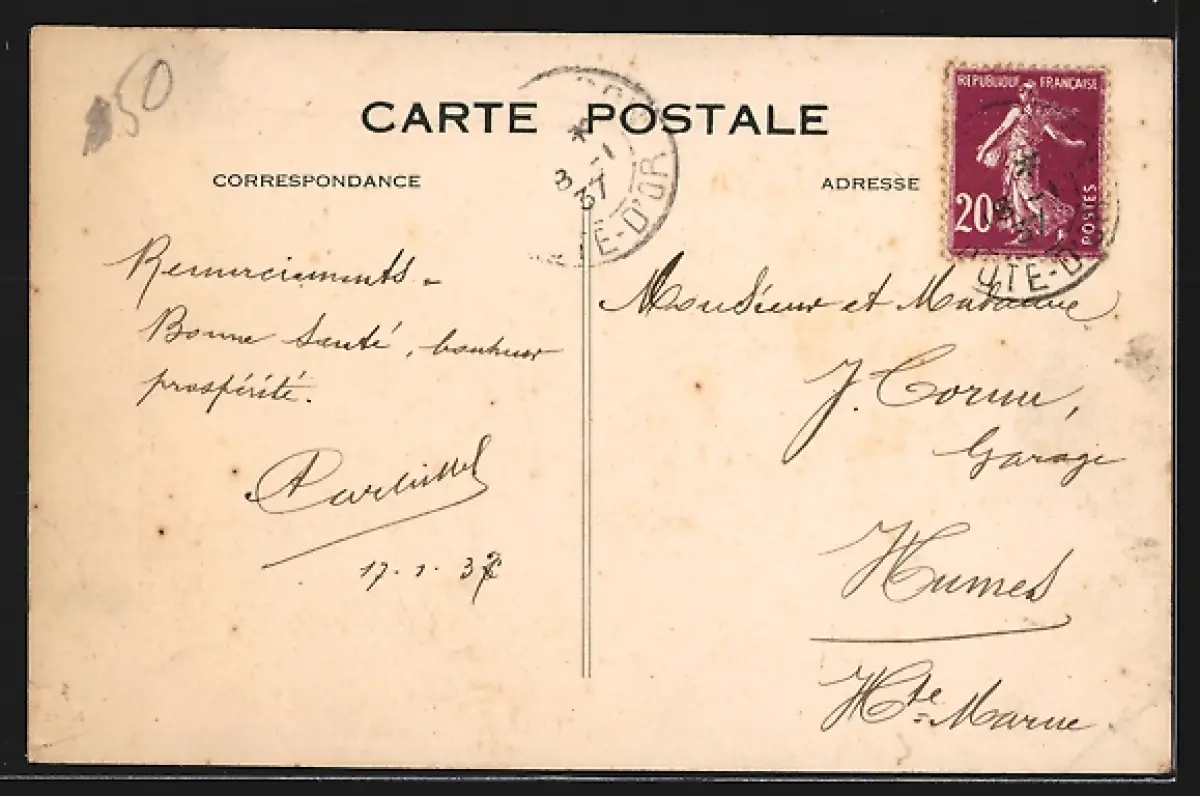 50
CARTE POSTALE
CORRESPONDANCE
ADRESSE
3 - 1
37
TE-D'OR
REPUBLIQUE FRANÇAISE
20
POSTES
OTE-D'O
Remerciements -
Bonne Santé, bonheur
prospérité.
17. 1. 37
Monsieur et Madame
J. Cornu,
Garage
Humes
Hte Marne